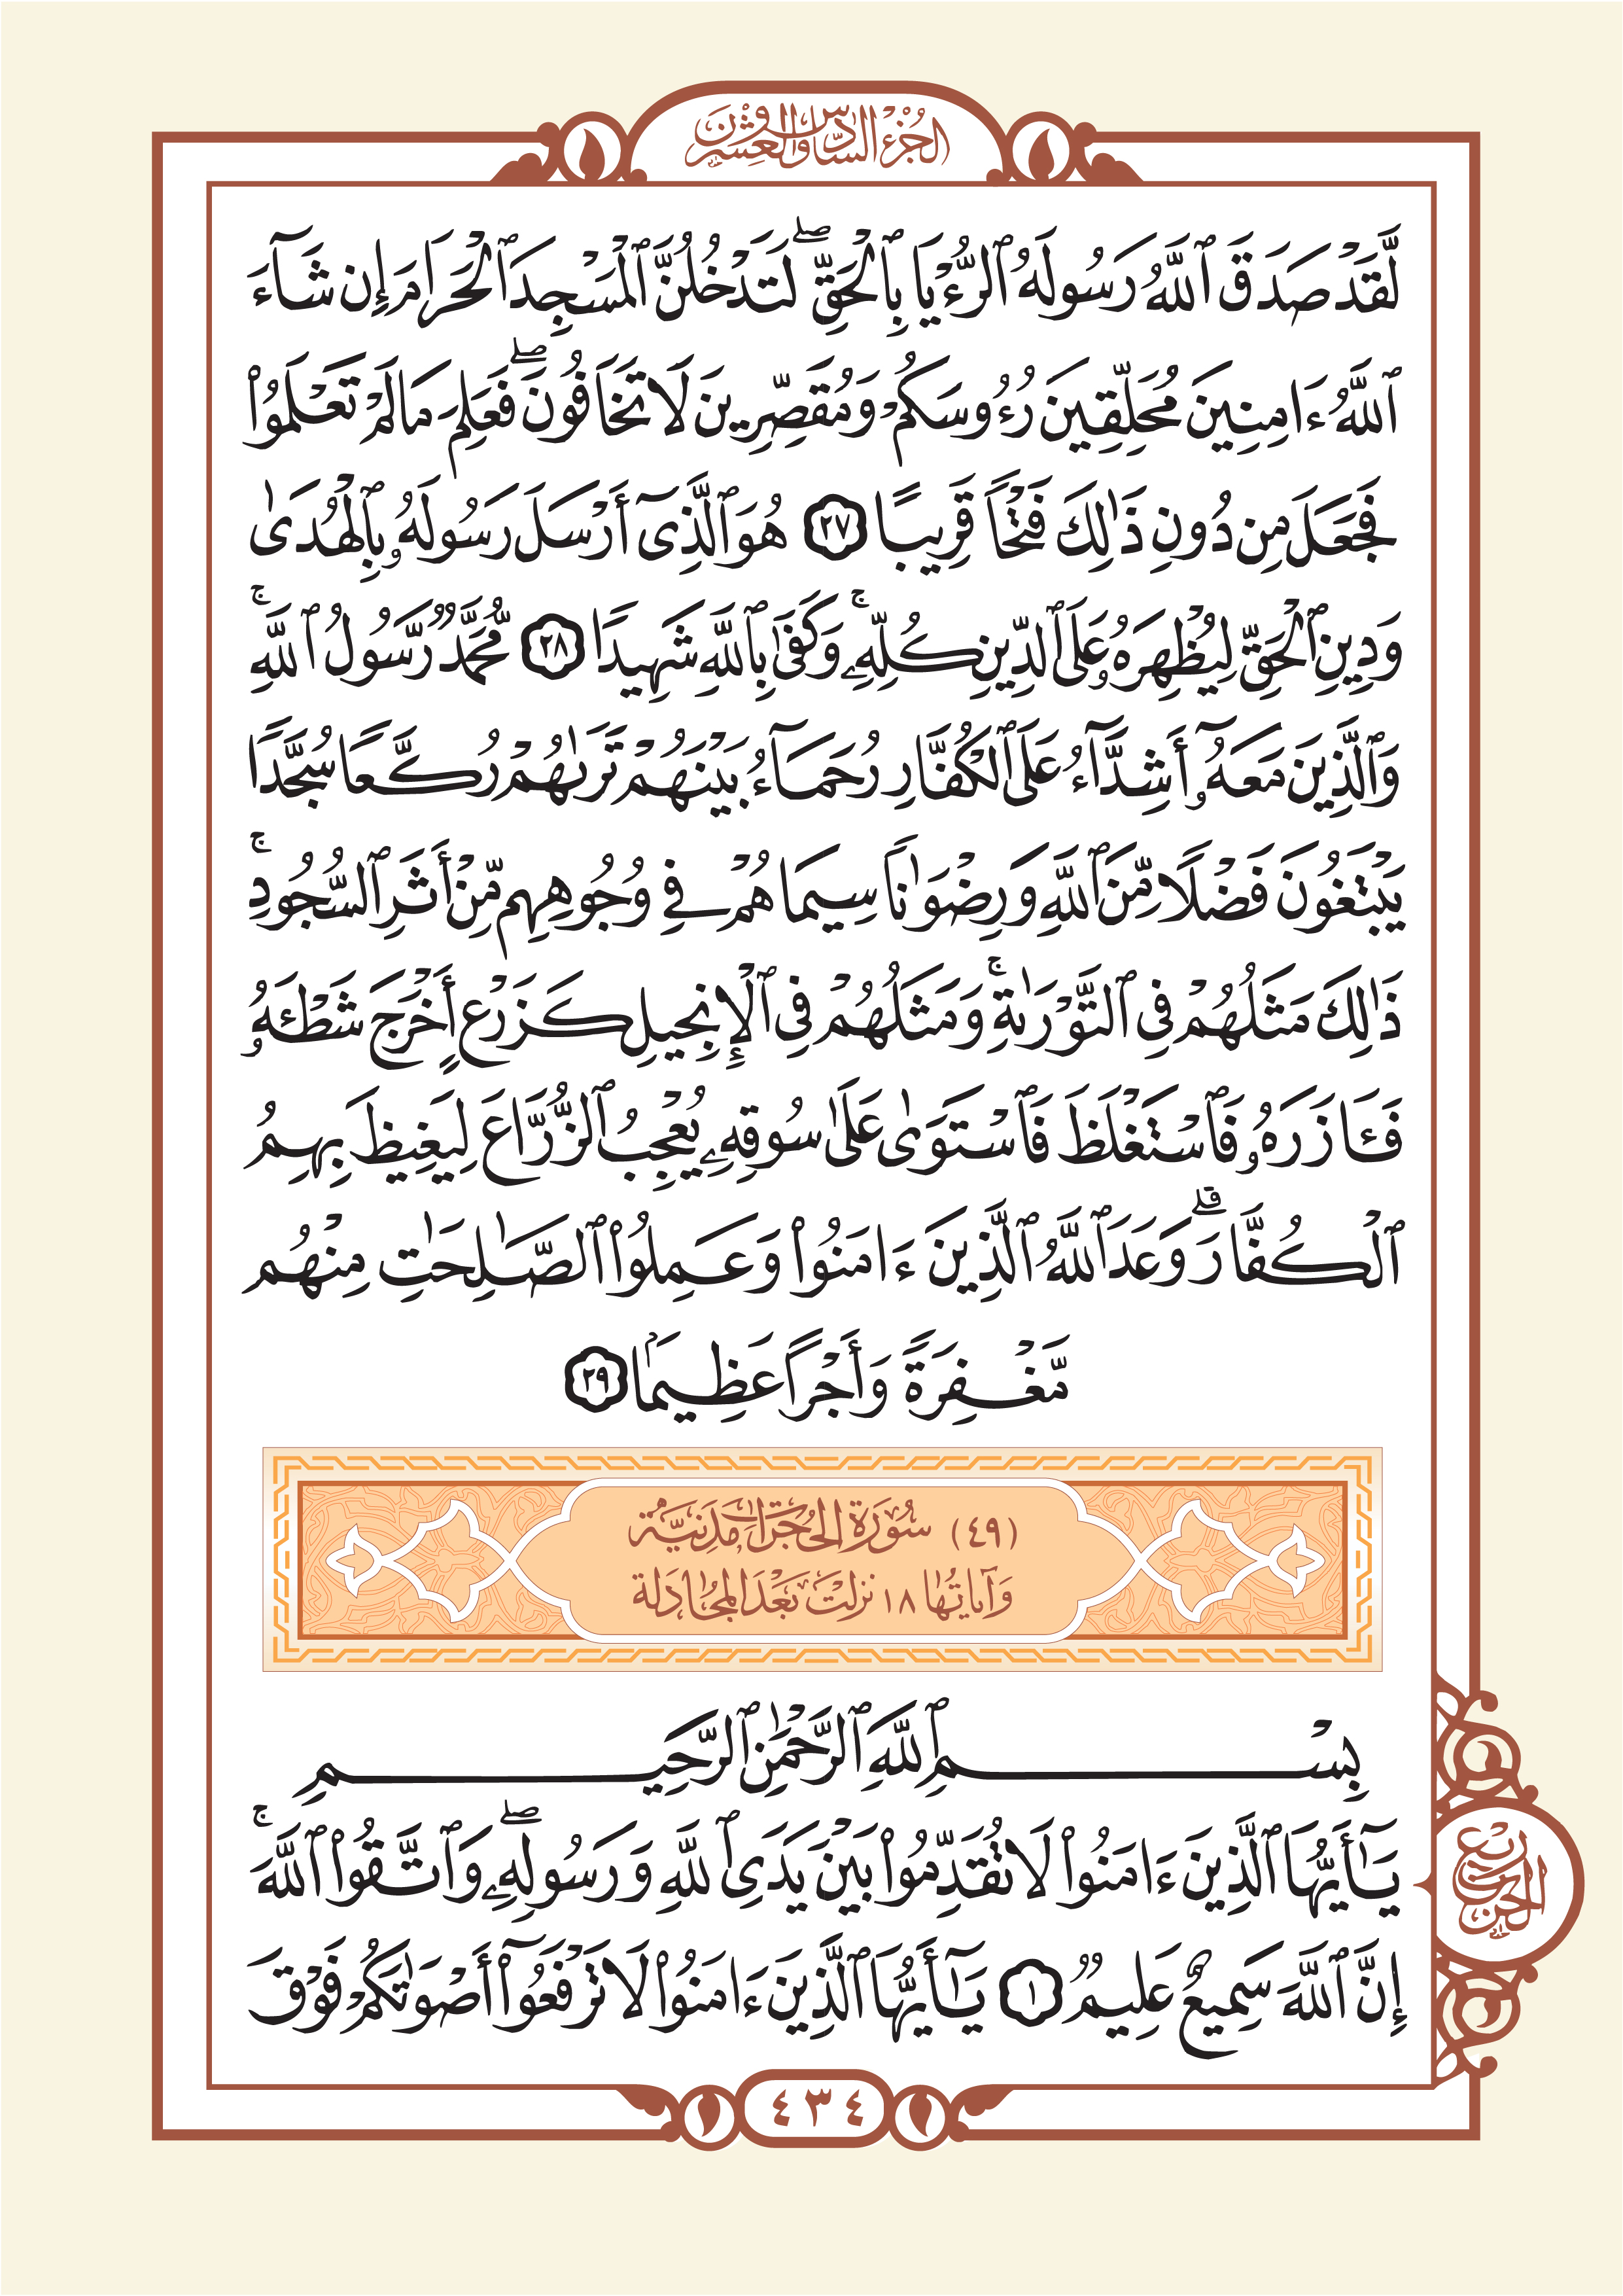 الجزء السادس والعشرون
لَّقَدۡ صَدَقَ ٱللَّهُ رَسُولَهُ ٱلرُّءۡيَا بِٱلۡحَقِّۖ لَتَدۡخُلُنَّ ٱلۡمَسۡجِدَ ٱلۡحَرَامَ إِن شَآءَ
ٱللَّهُ ءَامِنِينَ مُحَلِّقِينَ رُءُوسَكُمۡ وَمُقَصِّرِينَ لَا تَخَافُونَۖ فَعَلِمَ مَا لَمۡ تَعۡلَمُواْ
فَجَعَلَ مِن دُونِ ذَٰلِكَ فَتۡحٗا قَرِيبًا ٢٧ هُوَ ٱلَّذِيٓ أَرۡسَلَ رَسُولَهُۥ بِٱلۡهُدَىٰ
وَدِينِ ٱلۡحَقِّ لِيُظۡهِرَهُۥ عَلَى ٱلدِّينِ كُلِّهِۦۚ وَكَفَىٰ بِٱللَّهِ شَهِيدٗا ٢٨ مُّحَمَّدٞ رَّسُولُ ٱللَّهِۚ
وَٱلَّذِينَ مَعَهُۥٓ أَشِدَّآءُ عَلَى ٱلۡكُفَّارِ رُحَمَآءُ بَيۡنَهُمۡۖ تَرَىٰهُمۡ رُكَّعٗا سُجَّدٗا
يَبۡتَغُونَ فَضۡلٗا مِّنَ ٱللَّهِ وَرِضۡوَٰنٗاۖ سِيمَاهُمۡ فِي وُجُوهِهِم مِّنۡ أَثَرِ ٱلسُّجُودِۚ
ذَٰلِكَ مَثَلُهُمۡ فِي ٱلتَّوۡرَىٰةِۚ وَمَثَلُهُمۡ فِي ٱلۡإِنجِيلِ كَزَرۡعٍ أَخۡرَجَ شَطۡـَٔهُۥ
فَـَٔازَرَهُۥ فَٱسۡتَغۡلَظَ فَٱسۡتَوَىٰ عَلَىٰ سُوقِهِۦ يُعۡجِبُ ٱلزُّرَّاعَ لِيَغِيظَ بِهِمُ
ٱلۡكُفَّارَۗ وَعَدَ ٱللَّهُ ٱلَّذِينَ ءَامَنُواْ وَعَمِلُواْ ٱلصَّٰلِحَٰتِ مِنۡهُم
مَّغۡفِرَةٗ وَأَجۡرًا عَظِيمَۢا ٢٩
(٤٩) سُورَة الحُجُرَات مَدَنِيَّة
وَآيَاتُهَا ١٨ نزلت بَعْدَ المجَادلة
بِسۡمِ ٱللَّهِ ٱلرَّحۡمَٰنِ ٱلرَّحِيمِ
يَٰٓأَيُّهَا ٱلَّذِينَ ءَامَنُواْ لَا تُقَدِّمُواْ بَيۡنَ يَدَيِ ٱللَّهِ وَرَسُولِهِۦۖ وَٱتَّقُواْ ٱللَّهَۚ
ربع الحزب
إِنَّ ٱللَّهَ سَمِيعٌ عَلِيمٞ ١ يَٰٓأَيُّهَا ٱلَّذِينَ ءَامَنُواْ لَا تَرۡفَعُوٓاْ أَصۡوَٰتَكُمۡ فَوۡقَ
٤٣٤